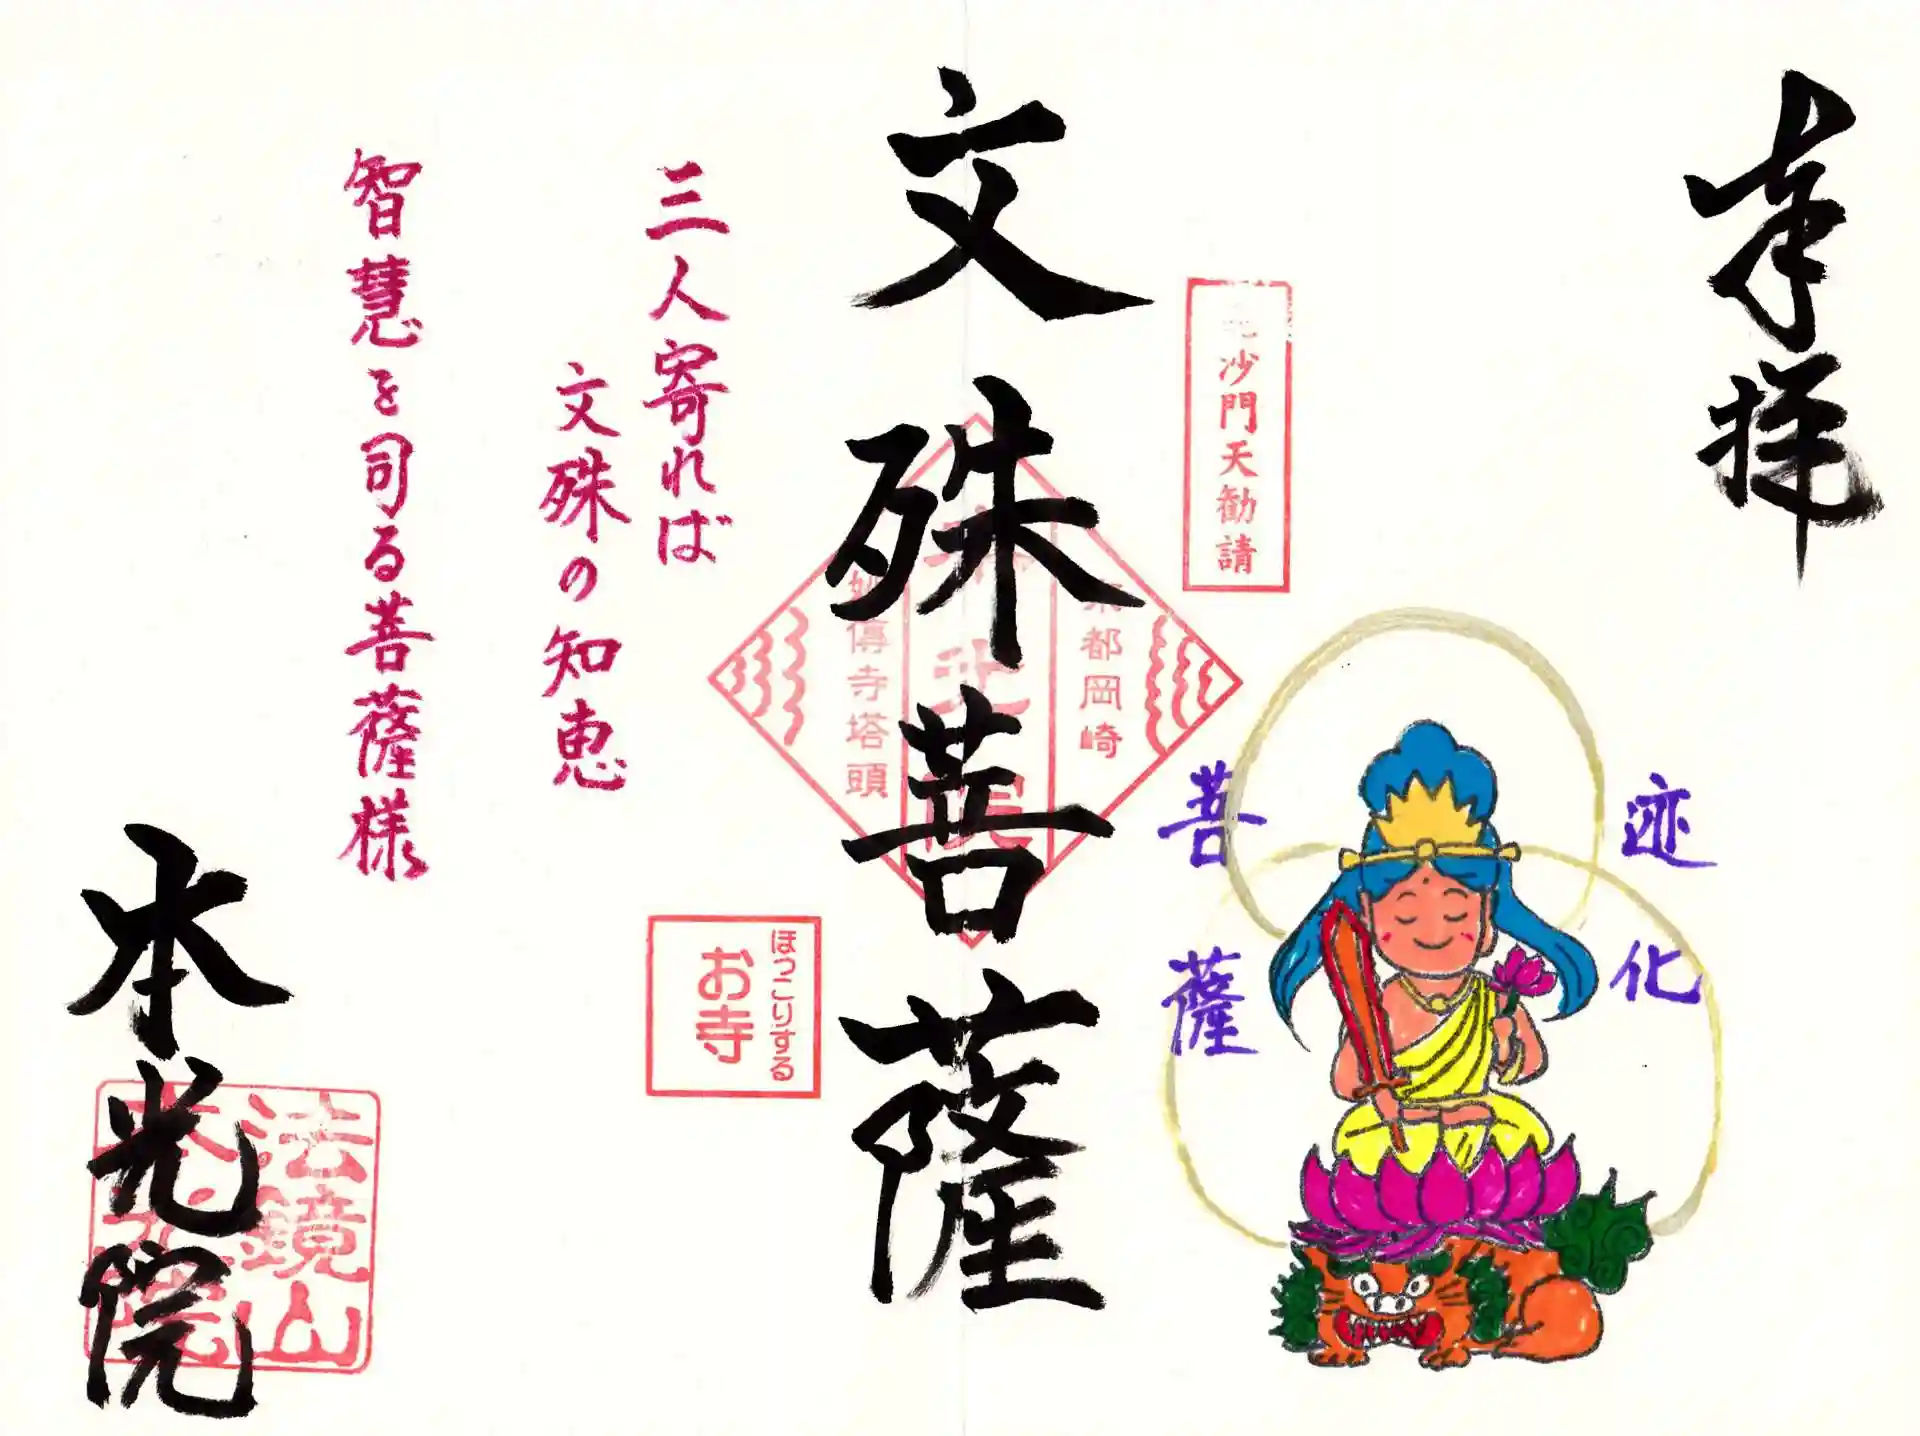 奉拝
迹化
菩薩
毘沙門天勧請
文殊菩薩
京都岡崎
本光院
妙傳寺塔頭
三人寄れば
文殊の知恵
ほっこりする
お寺
智慧を司る菩薩様
本光院
法鏡山
本光院